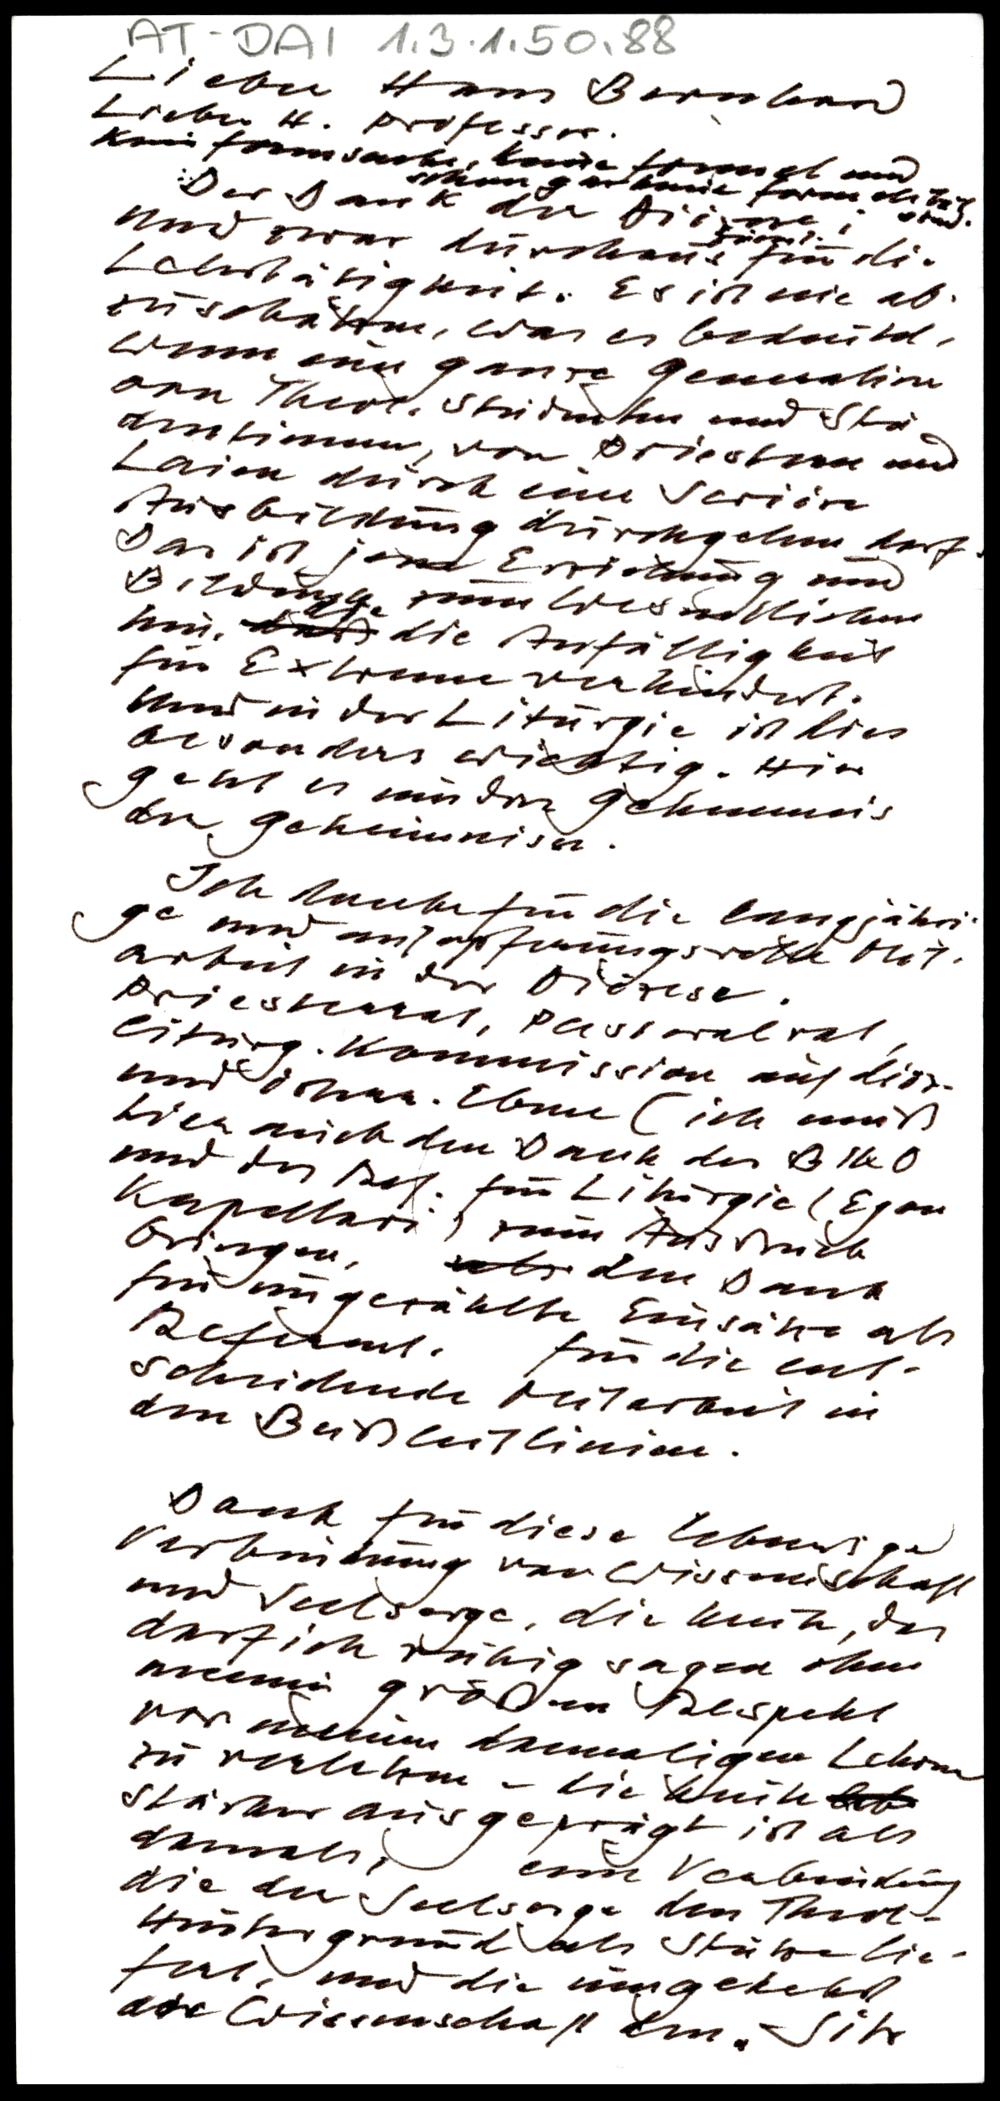 AT-DAI 1.3.1.50.88
Lieber Hans Bernhard
Lieber H. Professor.
Keine Formsache, keine Formel und
schon gar keine
Der Dank der Diözese
und zwar durchaus für die
Lehrtätigkeit. Es ist nie ab-
zuschätzen, was es bedeutet,
wenn eine ganze Generation
von Theol. Studenten und Stu
dentinnen, von Priestern und
Laien durch eine seriöse
Ausbildung durchgehen darf.
Das ist jene Erziehung und
Bildung zum Wesentlichen
hin, die die Anfälligkeit
für Extreme verhindert.
Und in der Liturgie ist dies
besonders wichtig. Hier
geht es um das Geheimnis
der Geheimnisse.
Ich danke für die langjähri-
ge und aufopferungsvolle Mit-
arbeit in der Diözese.
Priesterrat, Pastoralrat,
Liturg. Kommission auf diöz.
und österr. Ebene (ich muß
hier auch den Dank der BIKO
und des Ref. für Liturgie (Egon
Kapellari) zum Ausdruck
bringen, den Dank
für ungezählte Einsätze als
Referent. für die ent-
scheidende Mitarbeit in
den Bußleitlinien.
Dank für diese lebendige
Verbindung von Wissenschaft
und Seelsorge, die heute, das
darf ich ruhig sagen ohne
meinen großen Respekt
vor meinen damaligen Lehrern
zu verletzen – die heute
stärker ausgeprägt ist als
damals, eine Verbindung
die der Seelsorge den Theol-
Hintergrund als Stütze lie-
fert, und die umgekehrt
der Wissenschaft den „Sitz